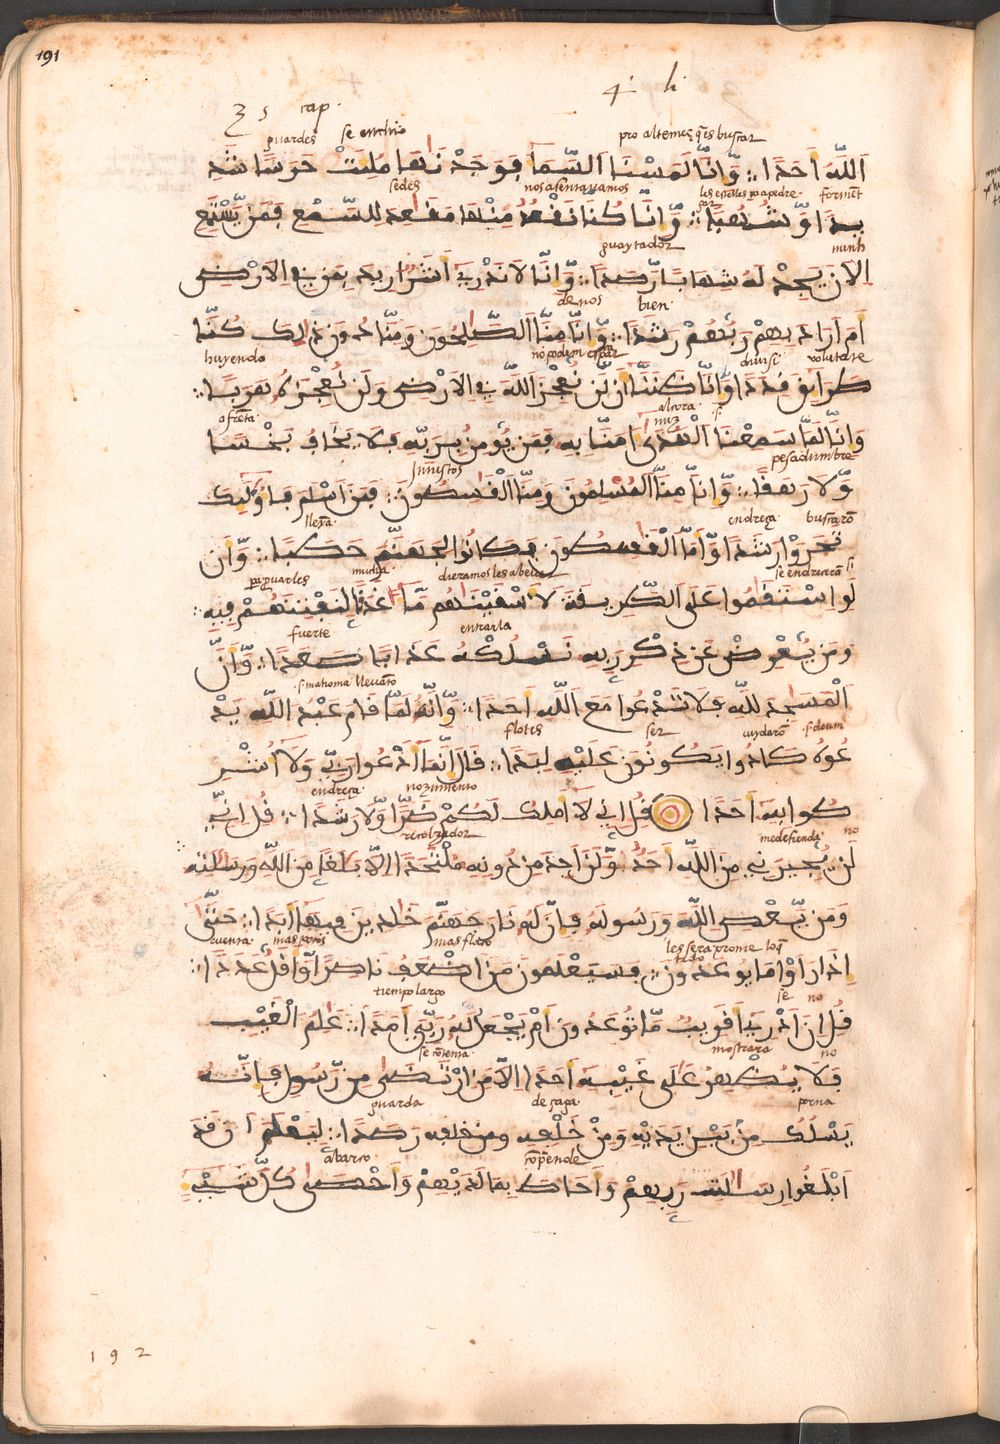 191
35 cap. 4 li
guardes se enchio pro altemus q̃ es buscar
اَللَّهُ اَحَدًا ؞ وَّاَنَّا لَمَسْنَا اَلسَّمَآ فَوَجَدْنَٰهَا مُلِئَتْ حَرَسًا شَدِ
sedes nos asentauamos les estelles formẽt
يدًا وَّشُهُبًا ؞ وَّاَنَّا كُنَّا نَقْعُدُ مِنْهَا مَقَٰعِدَ لِلسَّمْعِ فَمَن يَّسْتَمِعِ
guaytador
اِلَانَ يَجِدْ لَهُ شِهَابًا رَّصَدًا ؞ وَّاَنَّا لَا نَدْرِي اَشَرٌّ اُرِيدَ بِمَن فِي الَارْضِ
de nos bien
اَمَ اَرَادَ بِهِمْ رَبُّهُمْ رَشَدًا ؞ وَّاَنَّا مِنَّا اَلصَّٰلِحُونَ وَمِنَّا دُونَ ذَٰلِكَ كُنَّا
huyendo diuisi volutate
طَرَآئِقَ قِدَدًا وَّاَنَّا ظَنَنَّآ اَن لَّن نُّعْجِزَ اَللَّهَ فِي الَارْضِ وَلَن نُّعْجِزَهُ هَرَبًا ؞
afreta
وَاَنَّا لَمَّا سَمِعْنَا اَلْهُدَىٰٓ اٰمَنَّا بِهِ فَمَن يُّومِنُ بِرَبِّهِ فَلَا يَخَافُ بَخْسًا
Jniustos pesadumbre
وَّلَا رَهَقًا ؞ وَّاَنَّا مِنَّا اَلْمُسْلِمُونَ وَمِنَّا اَلْقَٰسِطُونَ ؞ فَمَنَ اَسْلَمَ فَأُوْلَٰٓئِكَ
lleña endreça buscarõ
تَحَرَّوْا رَشَدًا وَّاَمَّا اَلْقَٰسِطُونَ فَكَانُوا لِجَهَنَّمَ حَطَبًا ؞ وَّاَن
para guarles mucha dieramosles a beuer se endreceran si
لَوِ اِسْتَقَٰمُوا عَلَى اَلطَّرِيقَةِ لَأَسْقَيْنَٰهُم مَّآءً غَدَقًا لِّنَفْتِنَهُمْ فِيهِ ؞
fuerte entrarla
وَمَن يُّعْرِضْ عَن ذِكْرِ رَبِّهِ نَسْلُكْهُ عَذَابًا صَعَدًا ؞ وَّاَنَّ
s. mahoma lleuãto
اَلْمَسَٰجِدَ لِلَّهِ فَلَا تَدْعُوا مَعَ اَللَّهِ اَحَدًا ؞ وَّاَنَّهُ لَمَّا قَامَ عَبْدُ اَللَّهِ يَدْ
flotes ser cuydarõ s. deum
عُوهُ كَادُوا يَكُونُونَ عَلَيْهِ لِبَدًا ؞ قَالَ اِنَّمَآ اَدْعُوا رَبِّي وَلَآ اُشْرِ
endreça nozimiento
كُ بِهِ اَحَدًا قُلِ اِنِّي لَآ اَمْلِكُ لَكُمْ ضَرًّا وَّلَا رَشَدًا ؞ قُلِ اِنِّي
recolzador me defienda no
لَن يُّجِيرَنِي مِنَ اَللَّهِ اَحَدٌ وَّلَنَ اَجِدَ مِن دُونِهِ مُلْتَحَدًا اِلَّا بَلَٰغًا مِّنَ اَللَّهِ وَرِسَٰلَٰتِهِ
وَمَن يَّعْصِ اِللَّهَ وَرَسُولَهُ فَإِنَّ لَهُ نَارَ جَهَنَّمَ خَٰلِدِينَ فِيهَآ اَبَدًا ؞ حَتَّىٰٓ
cuenta mas pocos mas flaco les sera prometido
اِذَا رَأَوْا مَا يُوعَدُونَ ؞ فَسَيَعْلَمُونَ مَنَ اَضْعَفُ نَاصِرًا وَّاَقَلُّ عَدَدًا ؞
tiempo largo se no
قُلِ اِنَ اَدْرِي اَقَرِيبٌ مَّا تُوعَدُونَ اَمْ يَجْعَلُ لَهُ رَبِّي اَمَدًا ؞ عَٰلِمُ الْغَيْبِ
se cõtenta mostrara no
فَلَا يُظْهِرُ عَلَىٰ غَيْبِهِ اَحَدًا اِلَّا مَنِ ارْتَضَىٰ مِن رَّسُولٍ فَإِنَّهُ
guarda de çaga porna
يَسْلُكُ مِنْ بَيْنِ يَدَيْهِ وَمِنْ خَلْفِهِ رَصَدًا ؞ لِّيَعْلَمَ أَن قَدَ
abarco cõpẽnde
اَبْلَغُوا رِسَٰلَٰتِ رَبِّهِمْ وَأَحَاطَ بِمَا لَدَيْهِمْ وَأَحْصَىٰ كُلَّ شَيْءٍ
192